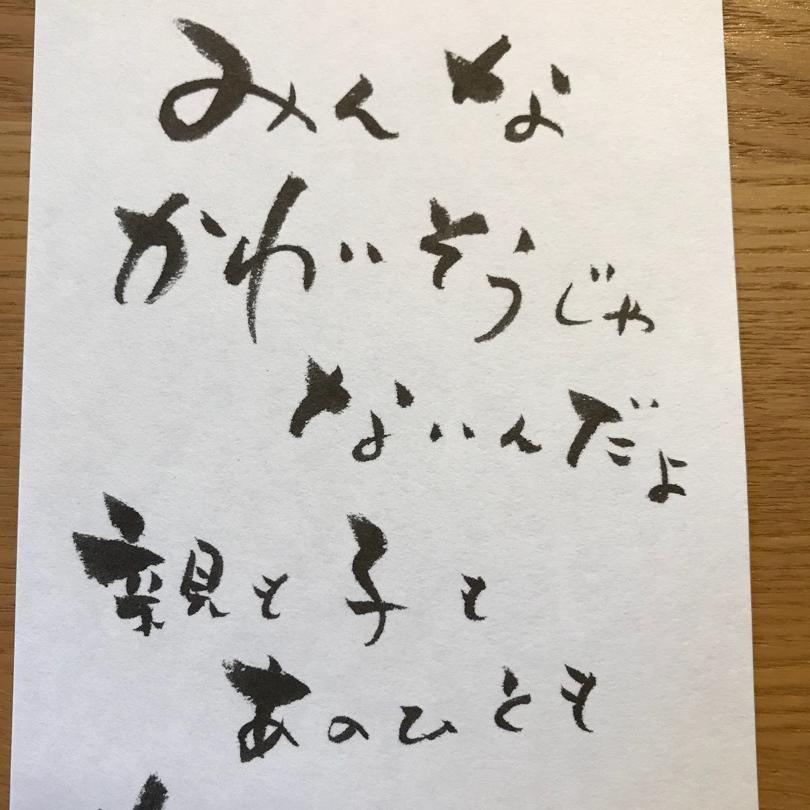 みんな
かわいそうじゃ
ないんだよ
親も子も
あのひとも